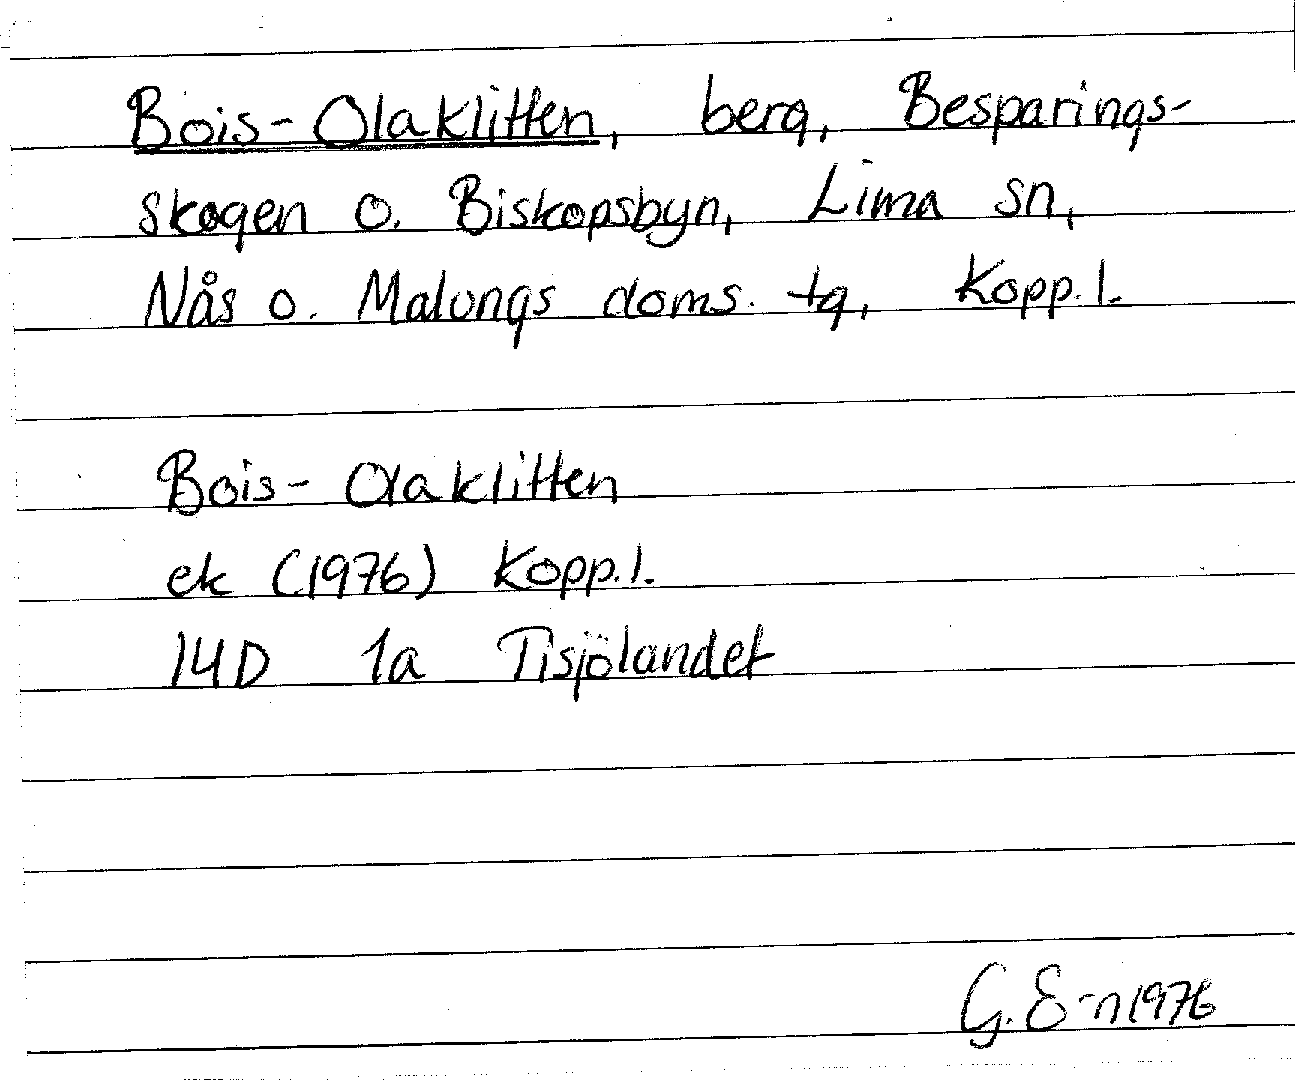 Bois-Olaklitten, berg, Besparings-
skogen o. Biskopsbyn, Lima sn,
Nås o. Malungs doms. tg, Kopp.l.
Bois-Olaklitten
ek (1976) Kopp.l.
14D 1a Tisjölandet
G.E-n 1976